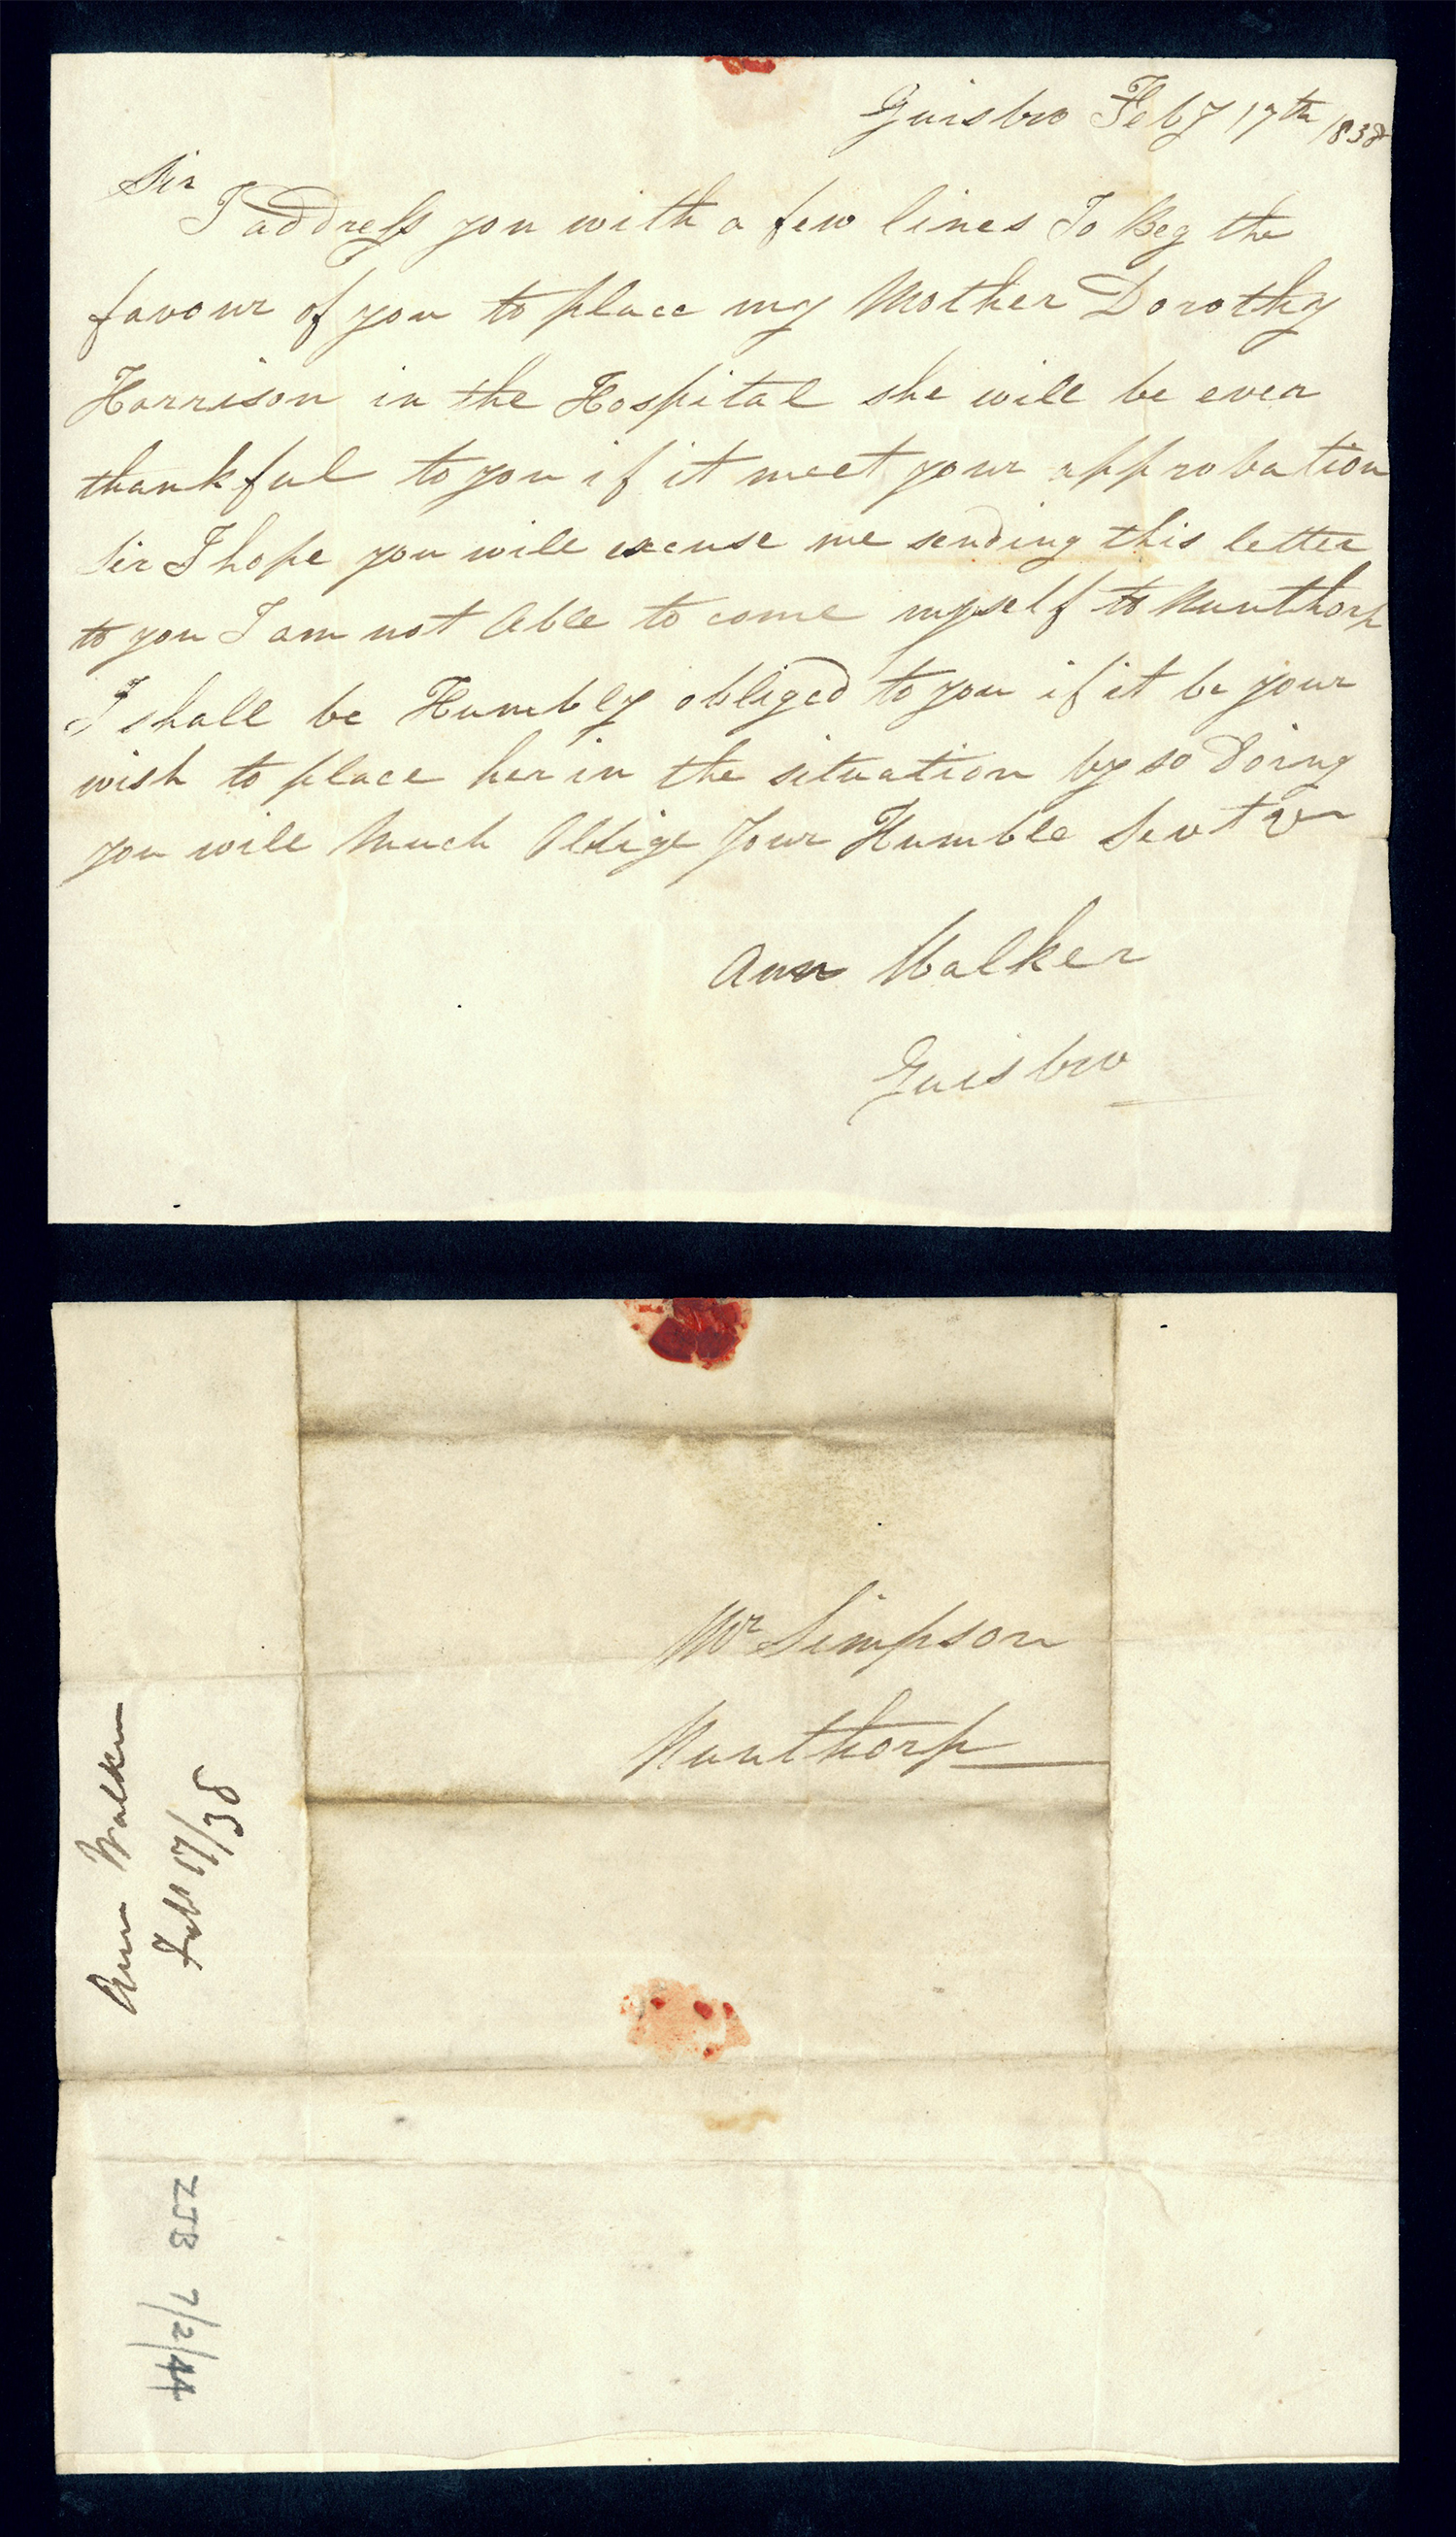 Guisbro Feby 17th 1838
Sir
I address you with a few lines To Beg the
favour of you to place my Mother Dorothy
Harrison in the Hospital she will be ever
thankful to you if it meet your approbation
Sir I hope you will excuse me sending this letter
to you I am not Able to come myself to Nunthorp
I shall be Humbly obliged to you if it be your
wish to place her in the situation by so doing
you will Much Oblige Your Humble Servt
Ann Walker
Guisbro
Mr Simpson
Nunthorp
Ann Walker
Feb 17/38
ZJB 7/2/44